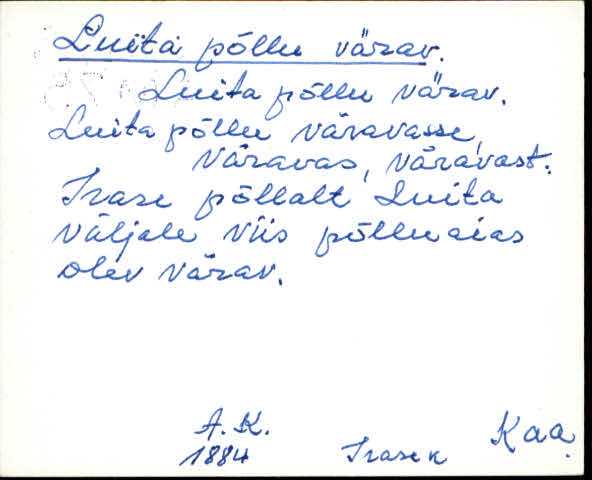 Luita põllu värav.
Luita põllu värav.
Luita põllu väravasse,
väravas, väravast.
Irase põllalt Luita
väljale viis põlluaias
olev värav.
A. K.
1884
Irase k
Kaa.